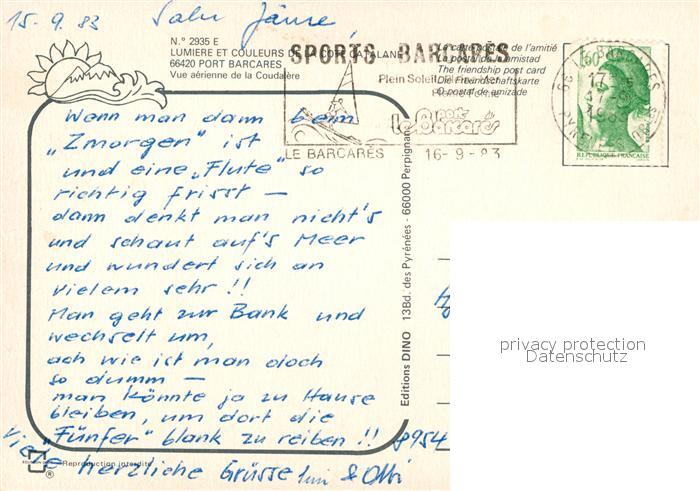 15.9.83 Salu Jänne,
N.º 2935 E
LUMIERE ET COULEURS DE LA COTE CATALANE
66420 PORT BARCARES
Vue aérienne de la Coudalère
SPORTS BARCARES
Plein Soleil Plein Air
Port
Le Barcarès
LE BARCARÈS 16-9-83
La carte postale de l'amitié
La postal de la amistad
The friendship post card
Die Freundschaftskarte
O postal de amizade
66 LE BARCARES
1,60
REPUBLIQUE FRANCAISE
Wenn man dann beim
„Zmorgen" ist
und eine „Flute" so
richtig frisst —
dann denkt man nicht's
und schaut auf's Meer
und wundert sich an
vielem sehr !!
Man geht zur Bank und
wechselt um,
ach wie ist man doch
so dumm —
man könnte ja zu Hause
bleiben, um dort die
„Fünfer" blank zu reiben !!
Viele herzliche Grüsse & Obi
Editions DINO 13Bd. des Pyrénées - 66000 Perpignan
8954
Reproduction interdite
®
privacy protection
Datenschutz